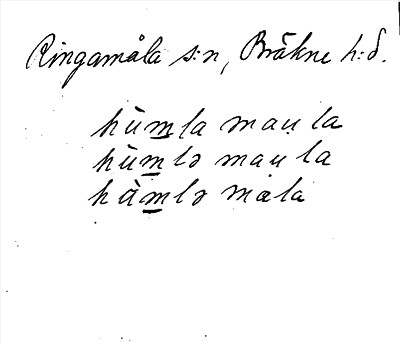 Ringamåla s:n, Bräkne h:d.
hùm̲la mau̯la
hùm̲lə mau̯la
hàm̲lə måla